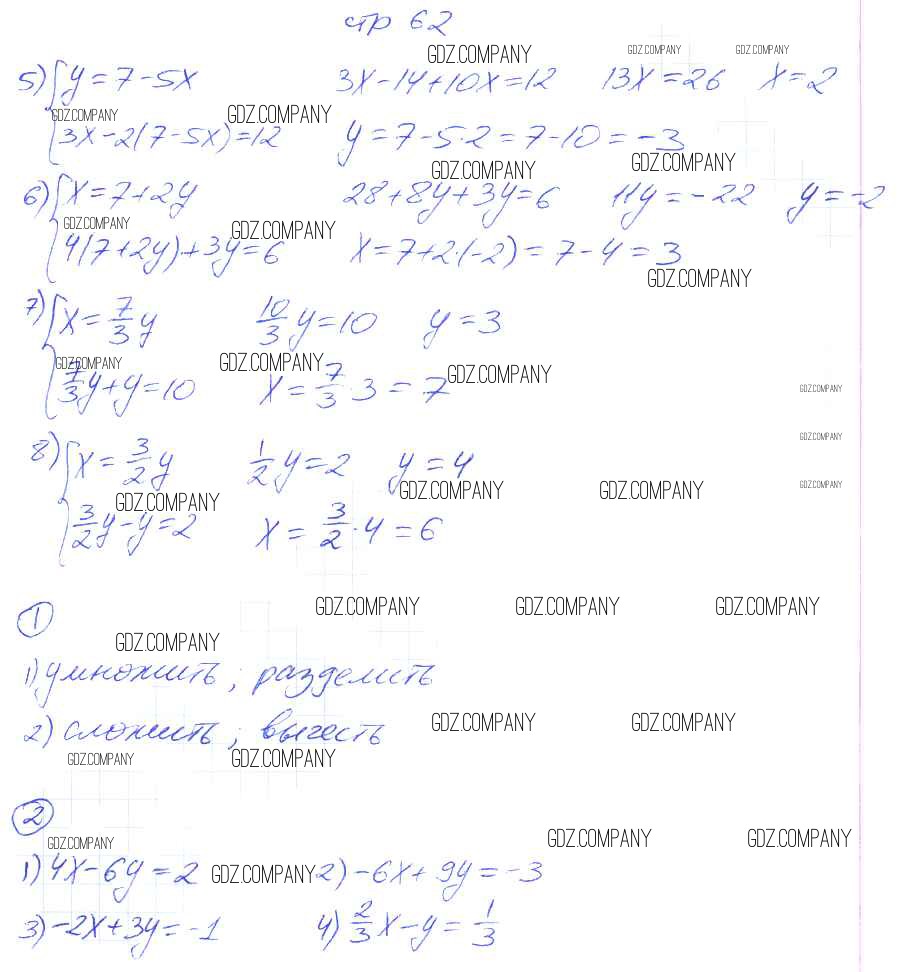 стр 62
GDZ.COMPANY GDZ.COMPANY GDZ.COMPANY
5) { y = 7 - 5x 3x - 14 + 10x = 12 13x = 26 x = 2
GDZ.COMPANY GDZ.COMPANY
3x - 2(7 - 5x) = 12 y = 7 - 5·2 = 7 - 10 = -3
GDZ.COMPANY GDZ.COMPANY
6) { x = 7 + 2y 28 + 8y + 3y = 6 11y = -22 y = -2
GDZ.COMPANY GDZ.COMPANY
4(7 + 2y) + 3y = 6 x = 7 + 2·(-2) = 7 - 4 = 3
GDZ.COMPANY
7) { x = 7/3 y 10/3 y = 10 y = 3
GDZ.COMPANY GDZ.COMPANY GDZ.COMPANY
7/3 y + y = 10 x = 7/3 · 3 = 7 GDZ.COMPANY
GDZ.COMPANY
8) { x = 3/2 y 1/2 y = 2 y = 4
GDZ.COMPANY GDZ.COMPANY GDZ.COMPANY GDZ.COMPANY
3/2 y - y = 2 x = 3/2 · 4 = 6
GDZ.COMPANY GDZ.COMPANY GDZ.COMPANY
1
GDZ.COMPANY
1) умножить; разделить
2) сложить; вычесть GDZ.COMPANY GDZ.COMPANY
GDZ.COMPANY GDZ.COMPANY
2
GDZ.COMPANY GDZ.COMPANY GDZ.COMPANY
1) 4x - 6y = 2 GDZ.COMPANY 2) -6x + 9y = -3
3) -2x + 3y = -1 4) 2/3 x - y = 1/3